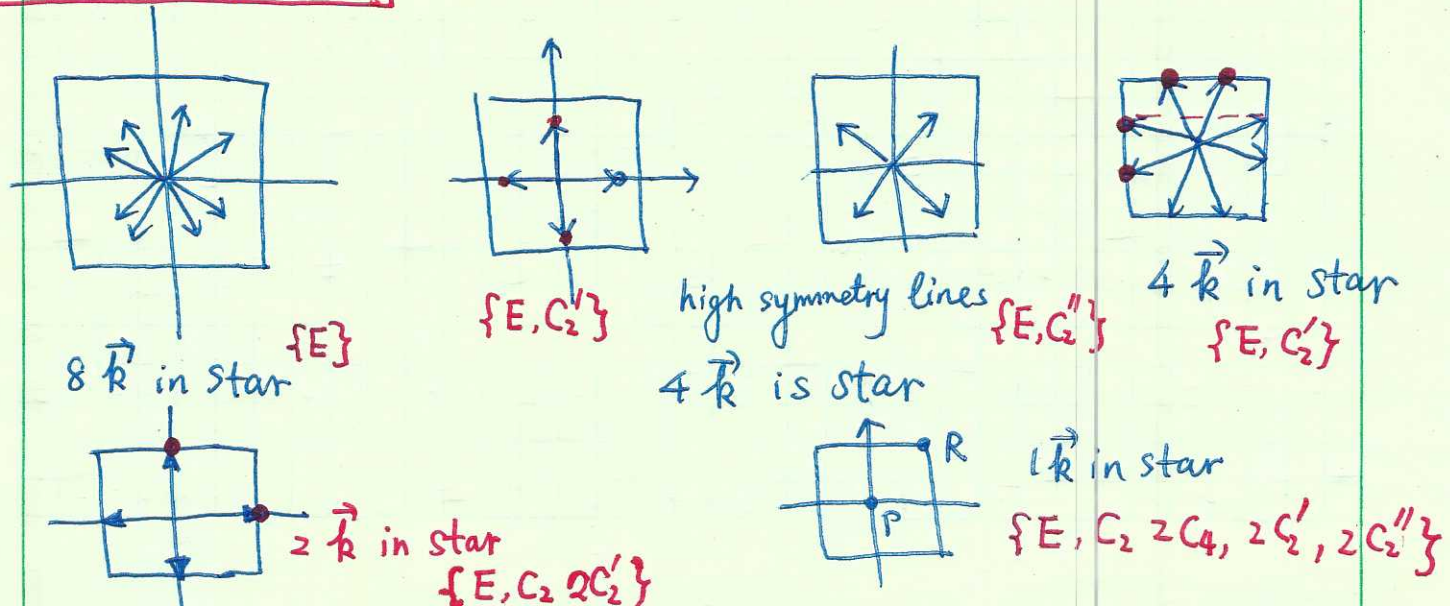 {E}
8 k⃗ in star
{E, C₂'}
high symmetry lines {E, C₂''}
4 k⃗ is star
4 k⃗ in star
{E, C₂'}
2 k⃗ in star
{E, C₂ 2C₂'}
R
P
1 k⃗ in star
{E, C₂ 2C₄, 2C₂', 2C₂''}